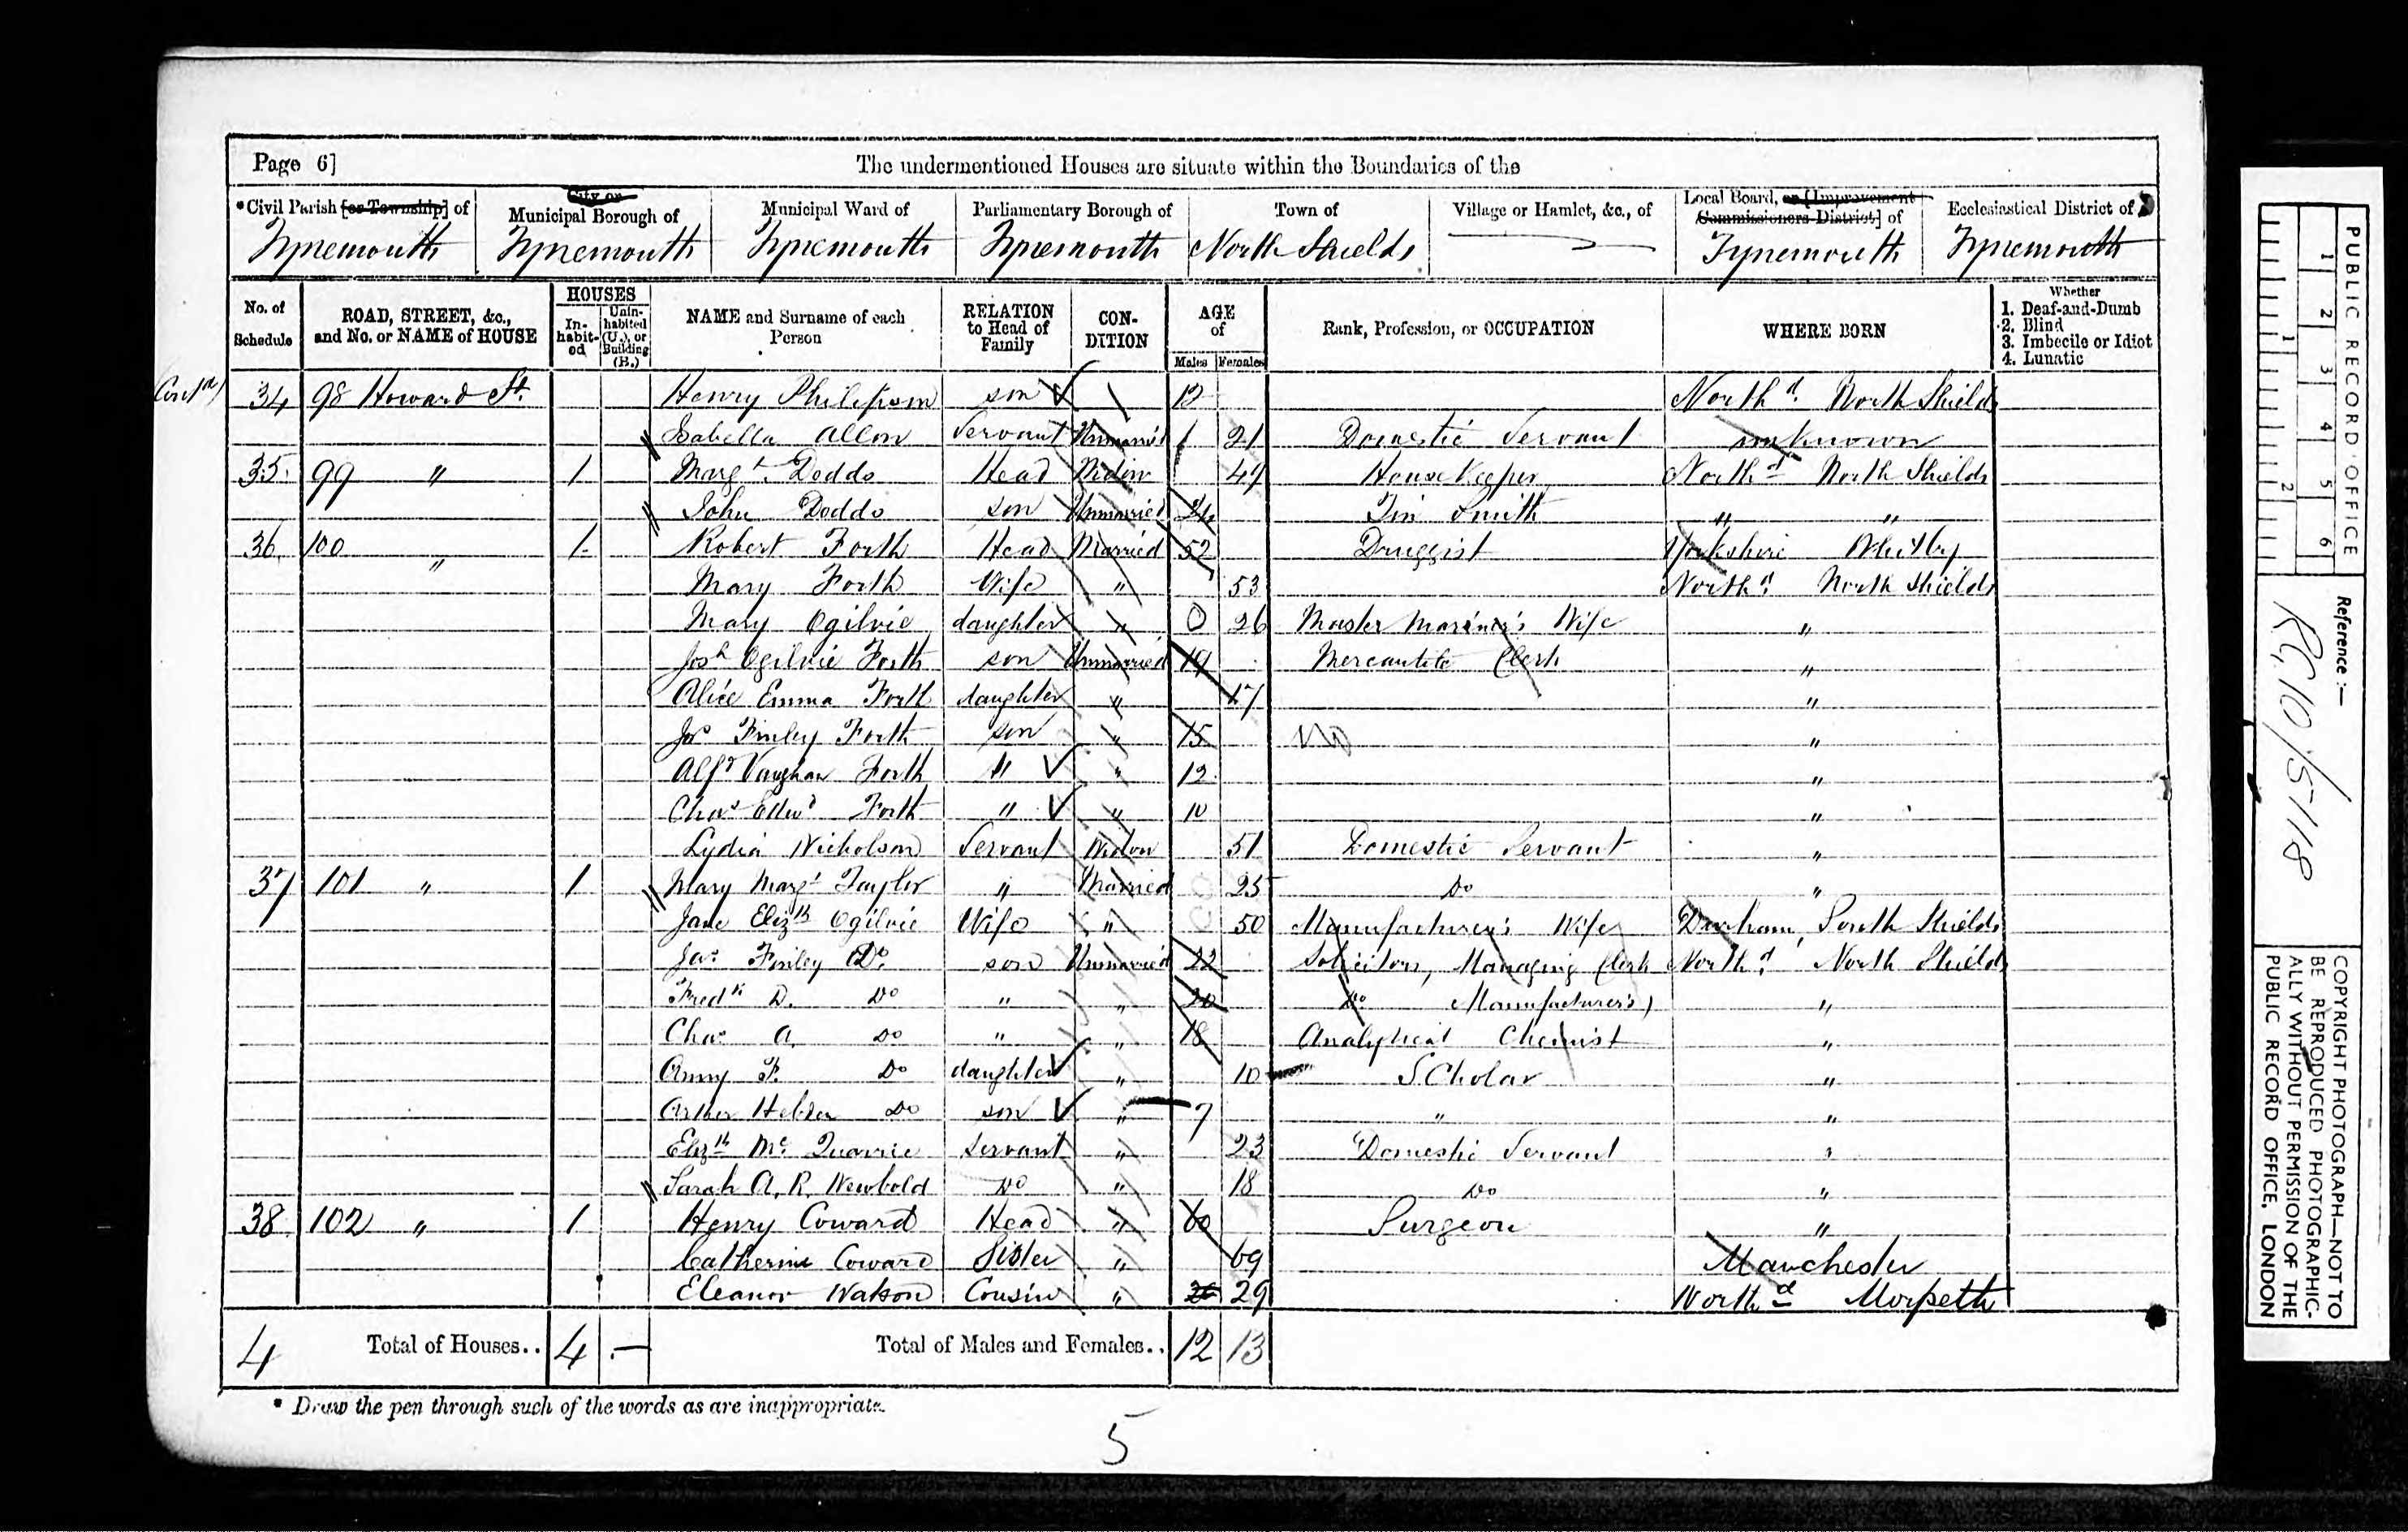 Page 6]
The undermentioned Houses are situate within the Boundaries of the
*Civil Parish [or Township] of
City or Municipal Borough of
Municipal Ward of
Parliamentary Borough of
Town of
Village or Hamlet, &c., of
Local Board, or [Improvement Commissioners District] of
Ecclesiastical District of
Tynemouth Tynemouth Tynemouth Tynemouth North Shields Tynemouth Tynemouth
No. of Schedule
ROAD, STREET, &c., and No. or NAME of HOUSE
HOUSES
In-habit-ed
Unin-habited (U.), or Building (B.)
NAME and Surname of each Person
RELATION to Head of Family
CON-DITION
AGE of
Males Females
Rank, Profession, or OCCUPATION
WHERE BORN
Whether
1. Deaf-and-Dumb
2. Blind
3. Imbecile or Idiot
4. Lunatic
(Contd) 34 98 Howard St. Henry Philipson son 12 Northd. North Shields
Isabella Allon Servant Unmarrid 21 Domestic Servant unknown
35 99 " 1 Margt. Dodds Head Widow 49 HouseKeeper Northd North Shields
John Dodds son Unmarried 24 Tin Smith " "
36 100 " 1 Robert Forth Head Married 52 Druggist Yorkshire Whitby
Mary Forth Wife " 53 Northd. North Shields
Mary Ogilvie daughter " 26 Master Mariner's Wife "
Josh Ogilvie Forth son Unmarried 19 Mercantile Clerk "
Alice Emma Forth daughter " 17 "
Jas Finley Forth son " 15 "
Alfd Vaughan Forth " " 12 "
Chas Edwd Forth " " 10 "
Lydia Nicholson Servant Widow 51 Domestic Servant "
37 101 " 1 Mary Margt Taylor " Married 25 Do "
Jane Elizth Ogilvie Wife " 50 Manufacturer's Wife Durham, South Shields
Jas. Finley Do. son Unmarried 22 Solicitors, Managing Clerk Northd. North Shields
Fredk D. Do " " 20 Do Manufacturer's) "
Chas A. Do " " 18 Analytical Chemist "
Amy F. Do daughter " 10 SCholar "
Arther Do son " 7 " "
Elizth Mc Quarrie servant " 23 Domestic Servant "
Sarah A. R. Newbold Do " 18 Do "
38 102 " 1 Henry Coward Head " 60 Surgeon "
Catherine Coward Sister " 69 Manchester
Eleanor Watson Cousin " 29 Northd Morpeth
4 Total of Houses.. 4 — Total of Males and Females.. 12 13
* Draw the pen through such of the words as are inappropriate.
5
PUBLIC RECORD OFFICE
1 2 3 4 5 6
1 2
Reference :—
RG 10/5118
COPYRIGHT PHOTOGRAPH—NOT TO
BE REPRODUCED PHOTOGRAPHIC-
ALLY WITHOUT PERMISSION OF THE
PUBLIC RECORD OFFICE, LONDON